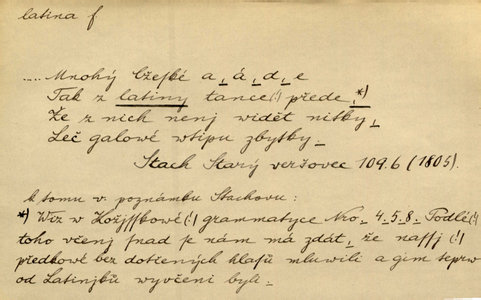 latina f
..... Mnohý Cžeské a, á, d, e
Tak z latiny tance(!) přede, *)
Že z nich nenj widět nitky,
Leč galowé wtipu zbytky.
Stach Starý veršovec 109.6 (1805).
k tomu v. poznámku Stachovu:
*) Wiz w (!) grammatyce Nro. 4. 5. 8. Podlé (!)
toho včenj snad se nám má zdát, že nassj (!)
předkowé bez dotčených hlasů mluwili a gim teprw
od Latinjků wyvčeni byli.